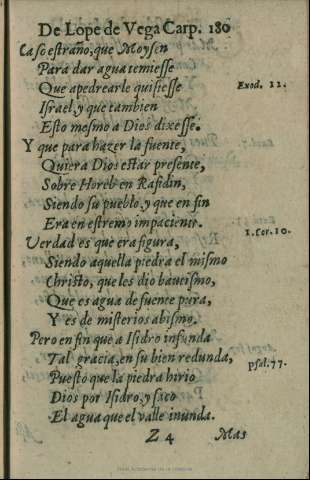 De Lope de Vega Carp. 180
Caso estraño, que Moysen
Para dar agua temiesse
Que apedrearle quisiesse
Exod. 12.
Israel, y que tambien
Esto mesmo a Dios dixesse.
Y que para hazer la fuente,
Quiera Dios estar presente,
Sobre Horeb en Rafidin,
Siendo su pueblo, y que en fin
Era en estremo impaciente.
1. Cor. 10.
Verdad es que era figura,
Siendo aquella piedra el mismo
Christo, que les dio bautismo,
Que es agua de fuente pura,
Y es de misterios abismo.
Pero en fin que a Isidro infunda
Tal gracia, en su bien redunda,
Psal. 77.
Puesto que la piedra hirio
Dios por Isidro, y saco
El agua que el valle inunda.
Z 4 Mas